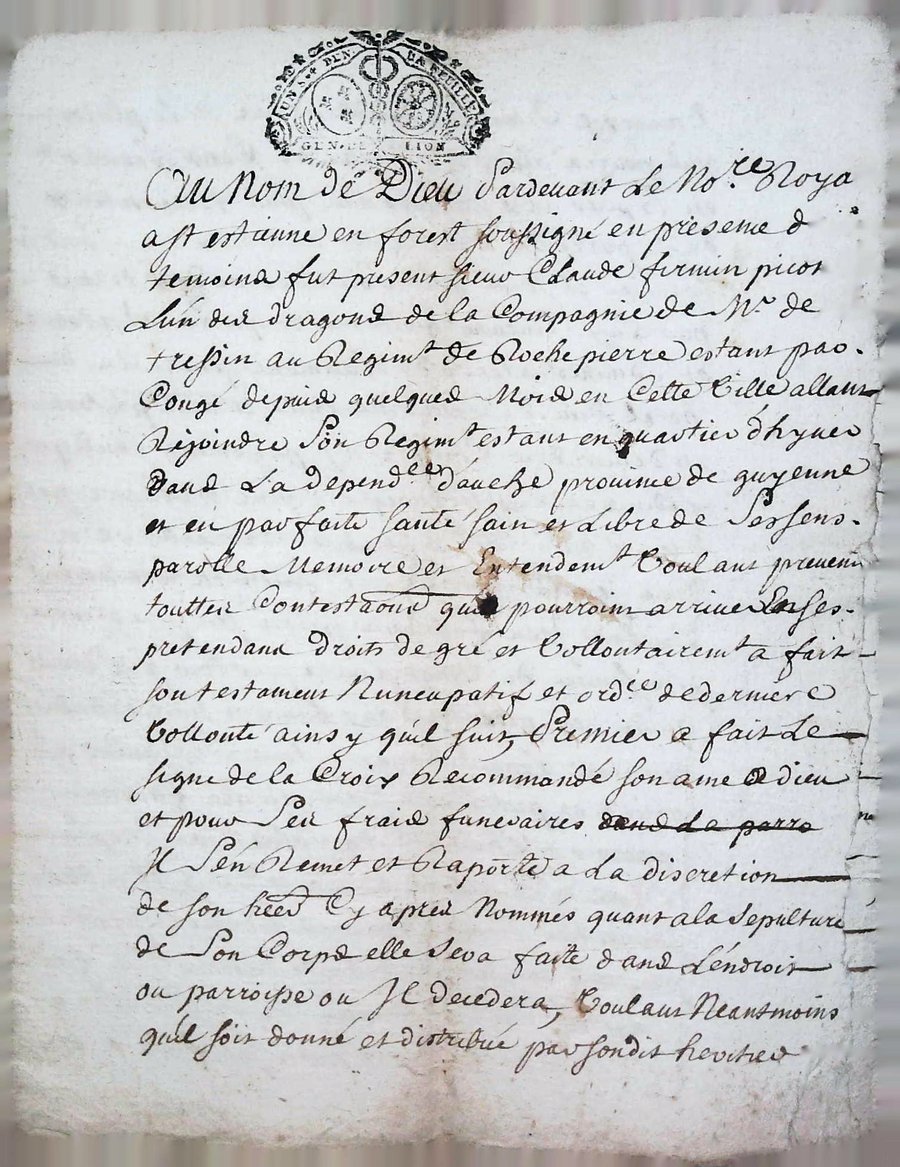 UN Sol DEN. LA FEUILLE
GEN. DE LION
Au Nom de Dieu Pardevant Le No.re Roya
a st estienne en forest soussigné en presence d
temoins fut present sieur Claude firmin picot
L'un des dragons de la Compagnie de Mr. de
tressin au Regimt de Rochepierre estant par
Congé depuis quelques Mois en Cette Ville allant
Rejoindre Son Regimt estant en quartier d'hyver
dans La dependce d'auche province de guyenne
et en parfaite santé sain et Libre de Ses sens
parolle Memoire et Entendemt Voulant preveni
touttes Contestaons qui pourroint arriver En ses
pretendans droits de gré et Vollontairemt a fait
son testament Nuncupatif et ordce de derniere
Vollonté ainsy qu'il suit, Premier a fait Le
signe de la Croix Recommandé son ame a dieu
et pour Ses frais funeraires dans La parro
Il S'en Remet et Raporte a La discretion
de son heer Cy apres Nommés quant a la Sepulture
de Son Corps elle sera faite dans L'endroit
ou parroisse ou Il decedera, Voulant Neantmoins
qu'il soit donné et distribué par sondit heritier